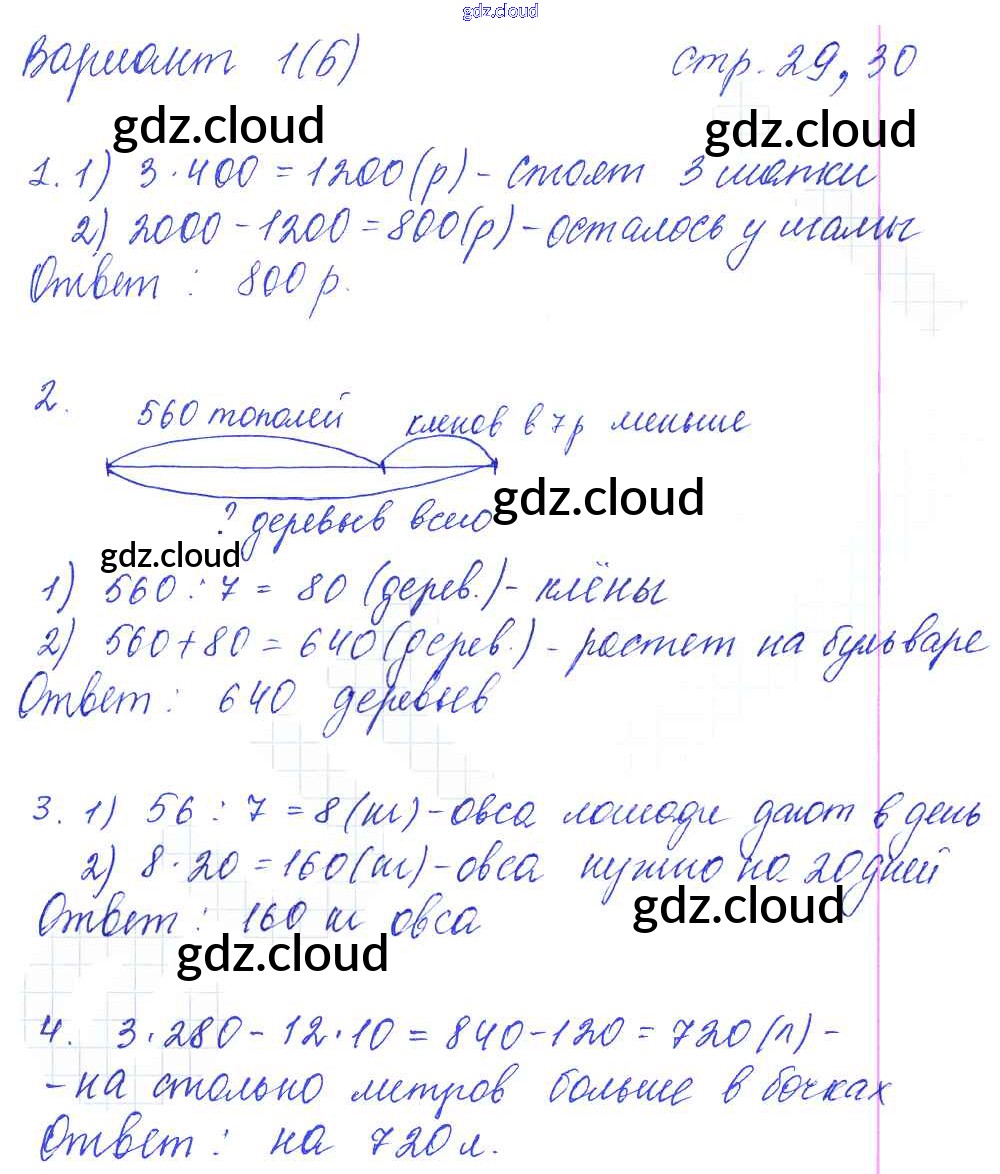 gdz.cloud
Вариант 1(б) стр. 29, 30
gdz.cloud gdz.cloud
1. 1) 3 · 400 = 1200 (р) - стоят 3 шапки
2) 2000 - 1200 = 800 (р) - осталось у мамы
Ответ : 800 р.
2.
560 тополей кленов в 7 р меньше
gdz.cloud
? деревьев всего
gdz.cloud
1) 560 : 7 = 80 (дерев.) - клёны
2) 560 + 80 = 640 (дерев.) - растет на бульваре
Ответ : 640 деревьев
3. 1) 56 : 7 = 8 (кг) - овса лошади дают в день
2) 8 · 20 = 160 (кг) - овса нужно на 20 дней
gdz.cloud
Ответ : 160 кг овса
gdz.cloud
4. 3 · 280 - 12 · 10 = 840 - 120 = 720 (л) -
- на столько метров больше в бочках
Ответ : на 720 л.